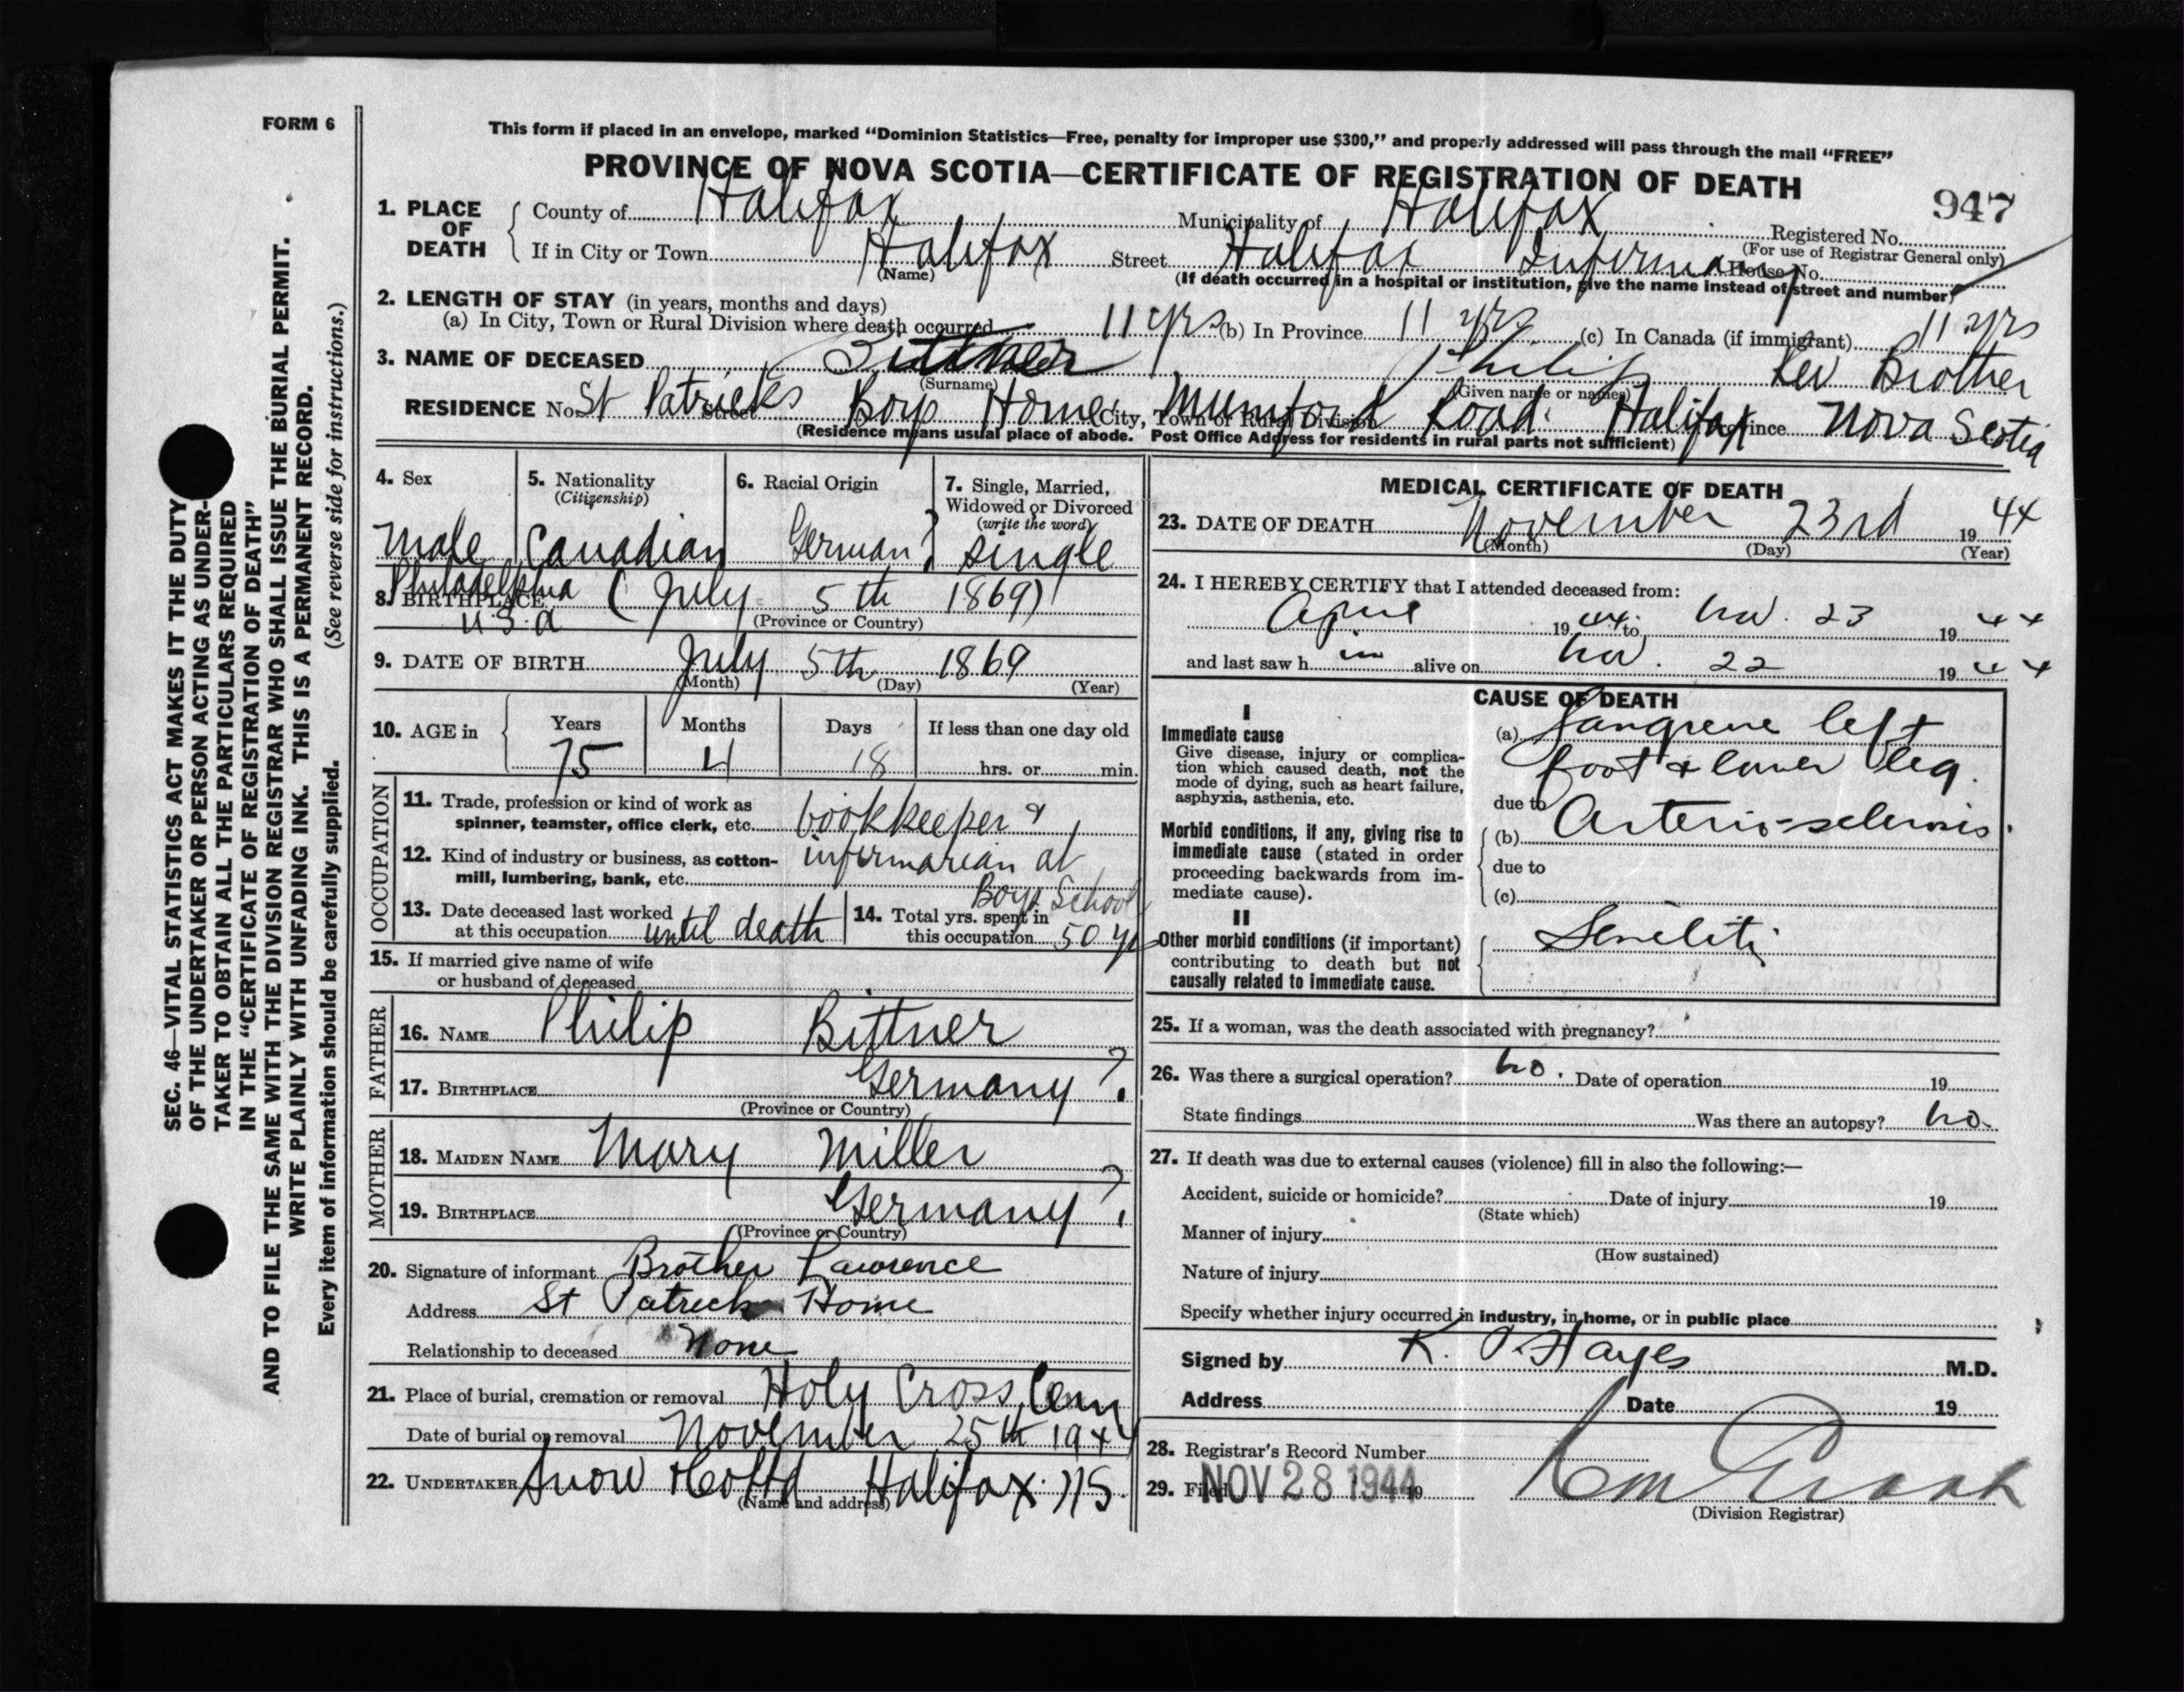 FORM 6
This form if placed in an envelope, marked "Dominion Statistics—Free, penalty for improper use $300," and properly addressed will pass through the mail "FREE"
PROVINCE OF NOVA SCOTIA—CERTIFICATE OF REGISTRATION OF DEATH
947
1. PLACE OF DEATH County of Halifax Municipality of Halifax Registered No.
(For use of Registrar General only)
If in City or Town Halifax Street Halifax Infirmary House No.
(Name) (If death occurred in a hospital or institution, give the name instead of street and number)
2. LENGTH OF STAY (in years, months and days)
(a) In City, Town or Rural Division where death occurred 11 yrs (b) In Province 11 yrs (c) In Canada (if immigrant) 11 yrs
3. NAME OF DECEASED Bittner Philip Rev Brother
(Surname) (Given name or names)
RESIDENCE No. St Patricks Street Boys Home City, Town or Rural Division Mumford Road Halifax Province Nova Scotia
(Residence means usual place of abode. Post Office Address for residents in rural parts not sufficient)
4. Sex
Male
5. Nationality
(Citizenship)
Canadian
6. Racial Origin
German?
7. Single, Married,
Widowed or Divorced
(write the word)
single
8. BIRTHPLACE Philadelphia (July 5th 1869)
U.S.A
(Province or Country)
9. DATE OF BIRTH July 5th 1869
(Month) (Day) (Year)
10. AGE in Years Months Days If less than one day old
75 4 18 hrs. or min.
OCCUPATION
11. Trade, profession or kind of work as
spinner, teamster, office clerk, etc. bookkeeper &
12. Kind of industry or business, as cotton-
mill, lumbering, bank, etc. infirmarian at
Boys School
13. Date deceased last worked
at this occupation until death
14. Total yrs. spent in
this occupation 50 yrs
15. If married give name of wife
or husband of deceased
FATHER
16. NAME Philip Bittner
17. BIRTHPLACE Germany?
(Province or Country)
MOTHER
18. MAIDEN NAME Mary Miller
19. BIRTHPLACE Germany?
(Province or Country)
20. Signature of informant Brother Lawrence
Address St Patrick Home
Relationship to deceased None
21. Place of burial, cremation or removal Holy Cross Cem
Date of burial or removal November 25th 1944
22. UNDERTAKER Snow & Co Ltd Halifax NS
(Name and address)
MEDICAL CERTIFICATE OF DEATH
23. DATE OF DEATH November 23rd 1944
(Month) (Day) (Year)
24. I HEREBY CERTIFY that I attended deceased from:
April 1944 to Nov. 23 1944
and last saw h im alive on Nov. 22 1944
CAUSE OF DEATH
I
Immediate cause
Give disease, injury or complica-
tion which caused death, not the
mode of dying, such as heart failure,
asphyxia, asthenia, etc.
(a) Gangrene left
foot & lower leg.
due to
Morbid conditions, if any, giving rise to
immediate cause (stated in order
proceeding backwards from im-
mediate cause).
(b) Arterio-sclerosis.
due to
(c)
II
Other morbid conditions (if important)
contributing to death but not
causally related to immediate cause.
Seneliti
25. If a woman, was the death associated with pregnancy?
26. Was there a surgical operation? no. Date of operation 19
State findings Was there an autopsy? no.
27. If death was due to external causes (violence) fill in also the following:—
Accident, suicide or homicide? Date of injury 19
(State which)
Manner of injury
(How sustained)
Nature of injury
Specify whether injury occurred in industry, in home, or in public place
Signed by K. P. Hayes M.D.
Address Date 19
28. Registrar's Record Number
29. Filed NOV 28 1944 19
(Division Registrar)
SEC. 46—VITAL STATISTICS ACT MAKES IT THE DUTY
OF THE UNDERTAKER OR PERSON ACTING AS UNDER-
TAKER TO OBTAIN ALL THE PARTICULARS REQUIRED
IN THE "CERTIFICATE OF REGISTRATION OF DEATH"
AND TO FILE THE SAME WITH THE DIVISION REGISTRAR WHO SHALL ISSUE THE BURIAL PERMIT.
WRITE PLAINLY WITH UNFADING INK. THIS IS A PERMANENT RECORD.
Every item of information should be carefully supplied. (See reverse side for instructions.)